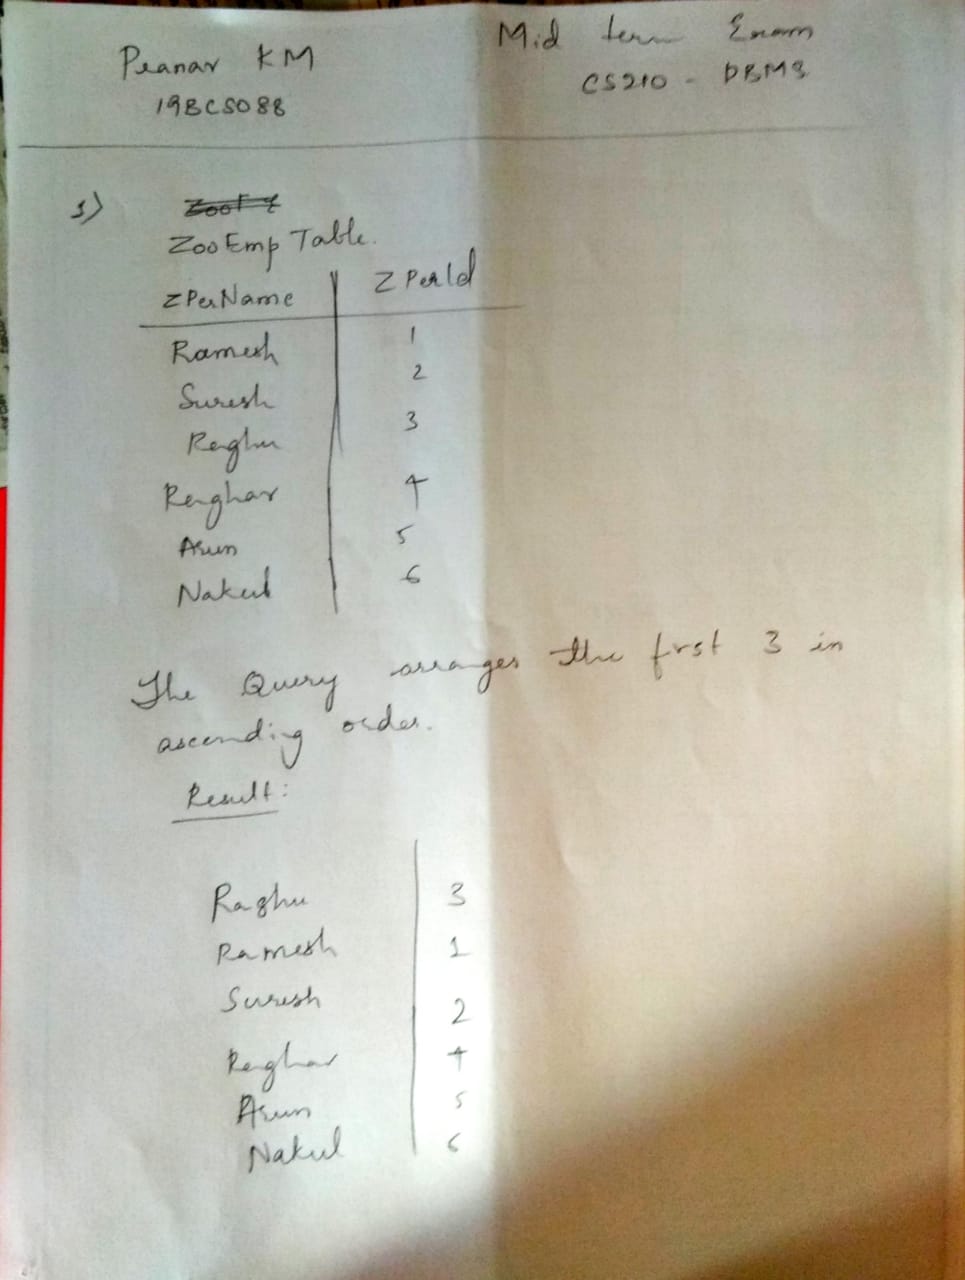 Pranav KM
19BCS088
Mid term Exam
CS210 - DBMS
1)
ZooEmp Table.
ZPerName ZPerId
Ramesh 1
Suresh 2
Raghu 3
Raghav 4
Arun 5
Nakul 6
The Query arranges the first 3 in
ascending order.
Result:
Raghu 3
Ramesh 1
Suresh 2
Raghav 4
Arun 5
Nakul 6